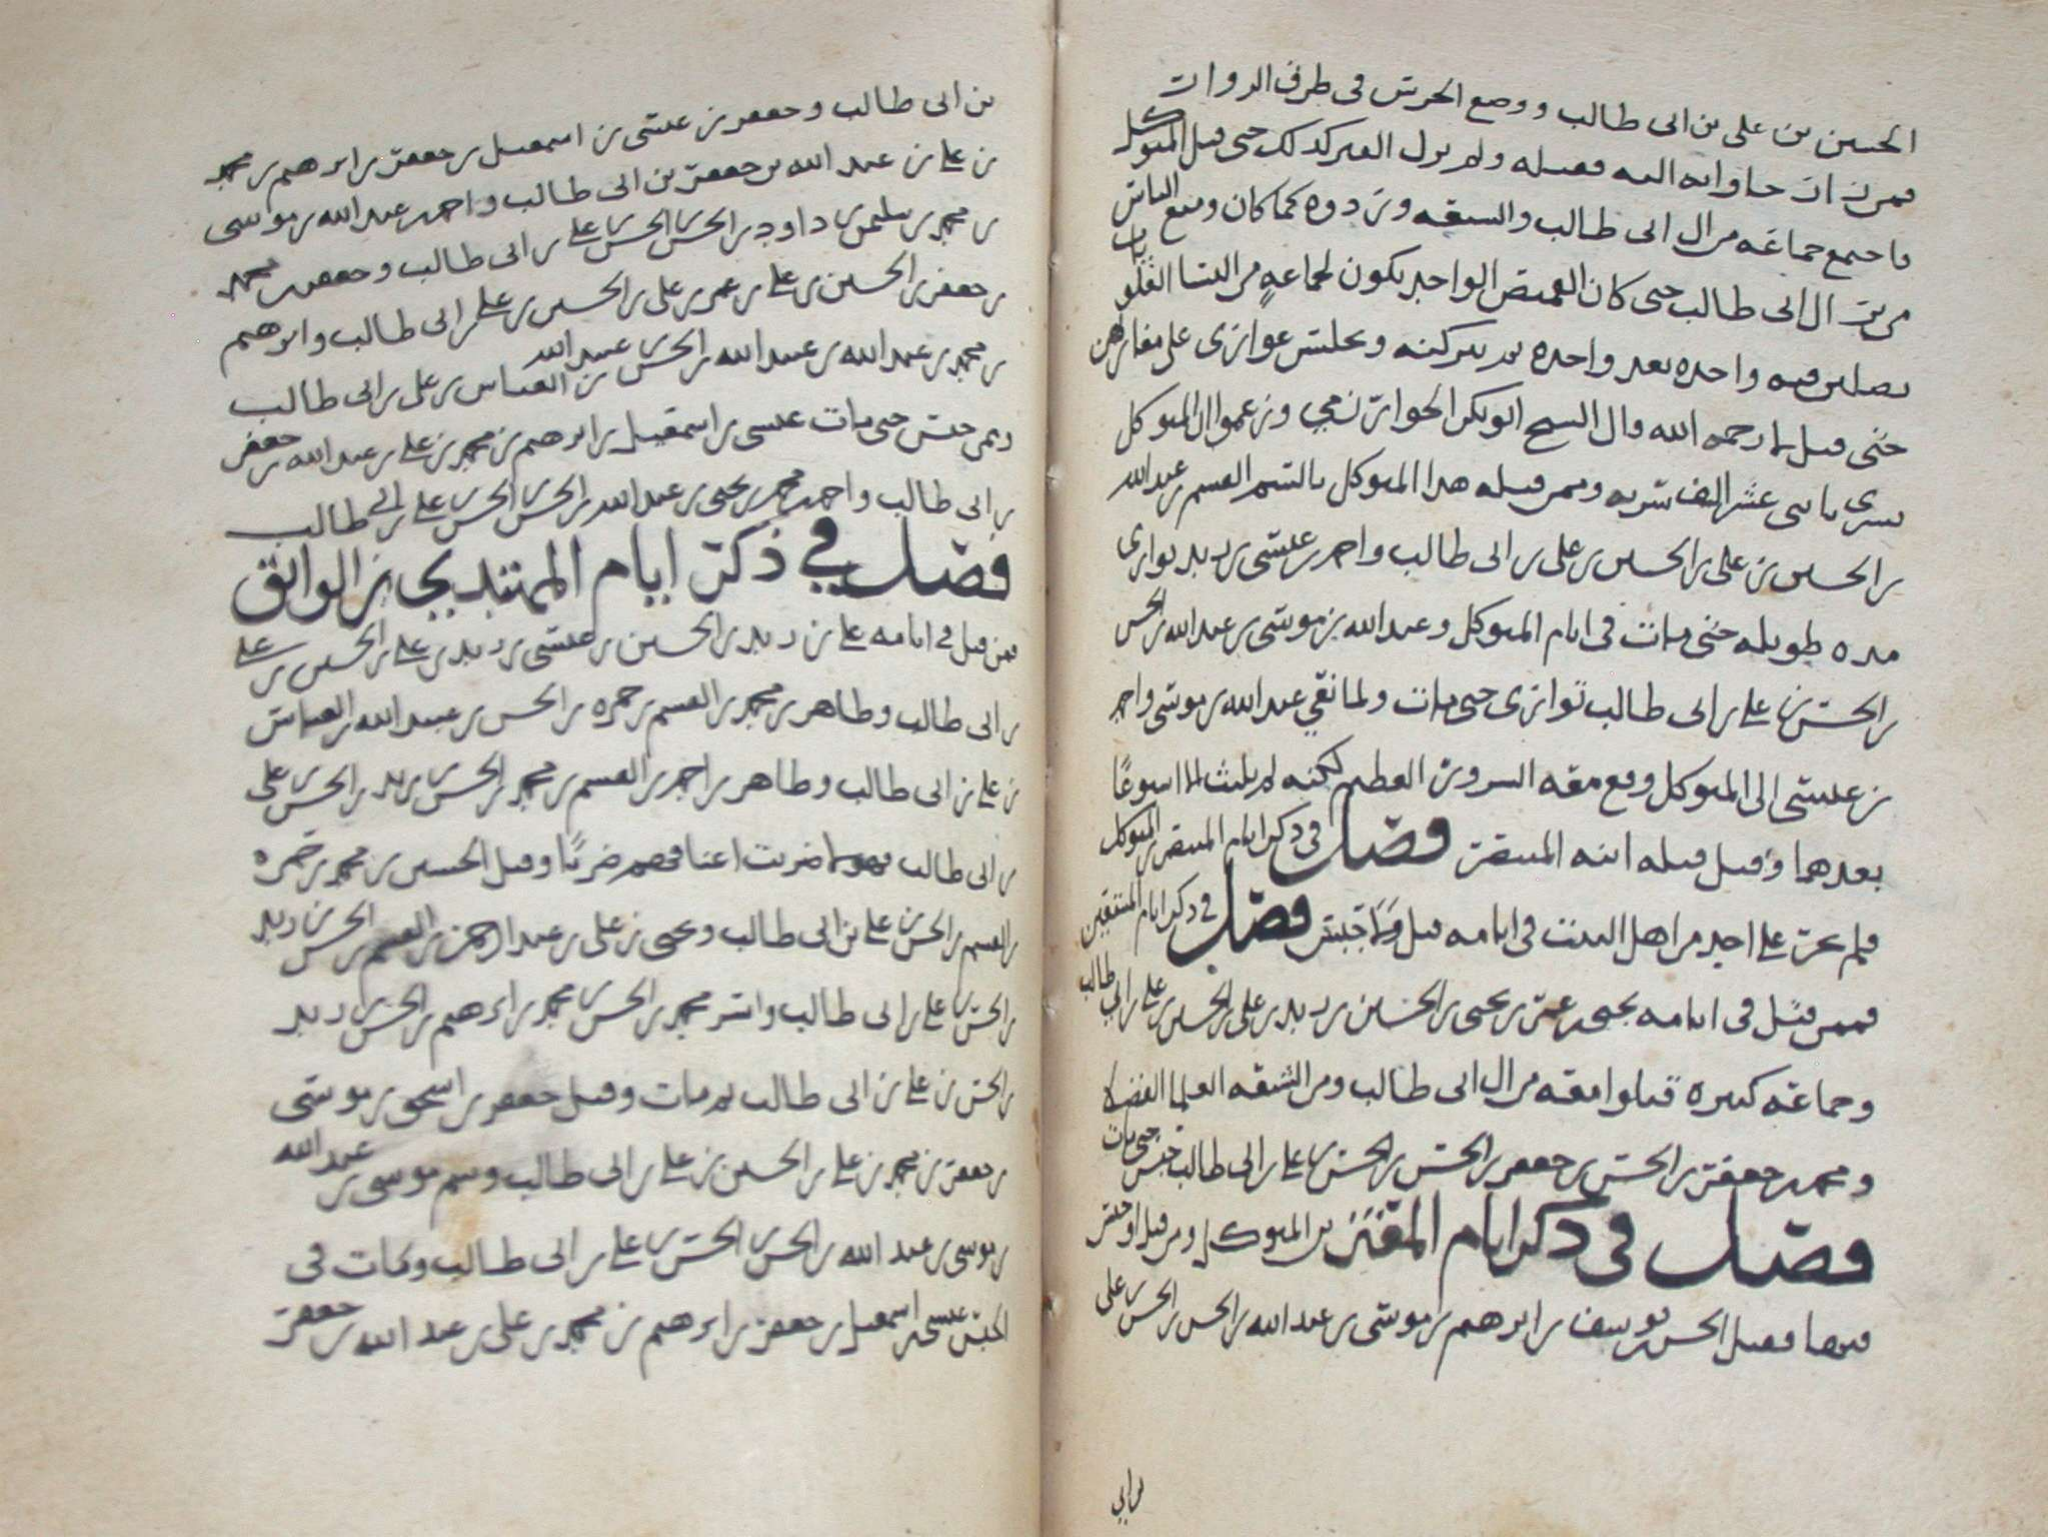 الحسين بن على بن ابى طالب ووضع الحرس فى طرف الزوار ان
فمن زار جاوا به اليه فقتله ولم يزل القبر كذلك حتى قتل المتوكل
فاجتمع جماعة من ال ابى طالب والشيعه وزدوه كما كان ومنع الناس
من بر ال ابى طالب حتى كان القميص الواحد يكون لجماعةٍ من النسا العلويات
يصلين فيه واحده بعد واحده ثم يتركنه ويجلسن عوارى على مغازلهن
حتى قتل لا رحمه الله قال الشيخ ابو بكر الخوارزمي وزعموا ان المتوكل
تسرى باثنى عشر الف سريه وممن قتله هذا المتوكل بالسم القسم بن عبد الله
بن الحسين بن على بن الحسين بن على بن ابى طالب واحمد بن عيسى بن زيد توارى
مده طويله حتى مات فى ايام المتوكل وعبد الله بن موسى بن عبد الله بن الحسن
بن الحسن بن على بن ابى طالب توارى حتى مات ولما نعي عبد الله بن موسى واحمد
بن عيسى الى المتوكل وقع معه السرور العظيم لكنه لم يلبث الا اسبوعًا
بعدهما وقيل قتله ابنه المنتصر فصل فى ذكر ايام المنتصر بن المتوكل
فلم يجر على احد من اهل البيت فى ايامه قتل ولا حبس فصل فى ذكر ايام المستعين
فممن قتل فى ايامه يحيى بن عمر بن يحيى بن الحسين بن زيد بن على بن الحسين بن على بن ابي طالب
وجماعه كبيره قتلوا معه من ال ابى طالب ومن الشيعه العلما الفضلا
ومحمد بن جعفر بن الحسن بن جعفر بن الحسن بن الحسن بن على بن ابى طالب حبس حتى مات
فصل فى ذكر ايام المعتز بن المتوكل ومن قتل او حبس
فيها فقتل الحسن بن يوسف بن ابرهيم بن موسى بن عبد الله بن الحسن بن الحسن بن على
بن ابي
بن ابى طالب وجعفر بن عيسى بن اسمعيل بن جعفر بن ابرهيم بن محمد
بن على بن عبد الله بن جعفر بن ابى طالب واحمد بن عبد الله بن موسى
بن محمد بن سليمن بن داود بن الحسن بن الحسن بن على بن ابى طالب وجعفر بن محمد
بن جعفر بن الحسين بن على بن عمر بن على بن الحسين بن على بن ابى طالب وابرهيم
بن محمد بن عبد الله بن عبيد الله بن الحسن بن عبيد الله بن العباس بن على بن ابى طالب
وممن حبس حتى مات عيسى بن اسمعيل بن ابرهيم بن محمد بن على بن عبد الله بن جعفر
بن ابى طالب واحمد بن محمد بن يحيى بن عبد الله بن الحسن بن الحسن بن على بن ابي طالب
فصل في ذكر ايام المهتدي بن الواثق
فمن قتل فى ايامه على بن زيد بن الحسين بن عيسى بن زيد بن على بن الحسين بن على
بن ابى طالب وطاهر بن محمد بن القسم بن حمزه بن الحسن بن عبيد الله بن العباس
بن على بن ابى طالب وطاهر بن احمد بن القسم بن محمد بن الحسن بن زيد بن الحسن بن على
بن ابى طالب فهولا ضربت اعناقهم ضربًا وقتل الحسين بن محمد بن حمزه
بن القسم بن الحسن بن على بن ابى طالب ويحيى بن على بن عبد الرحمن بن القسم بن الحسن بن زيد
بن الحسن بن على بن ابى طالب واسر محمد بن الحسن بن محمد بن ابرهيم بن الحسن بن زيد
بن الحسن بن على بن ابى طالب ثم مات وقتل جعفر بن اسحق بن موسى
بن جعفر بن محمد بن على بن الحسين بن على بن ابى طالب وسم موسى بن عبد الله
بن موسى بن عبد الله بن الحسن بن الحسن بن على بن ابى طالب ومات فى
الحبس عيسى بن اسمعيل بن جعفر بن ابرهيم بن محمد بن على بن عبد الله بن جعفر